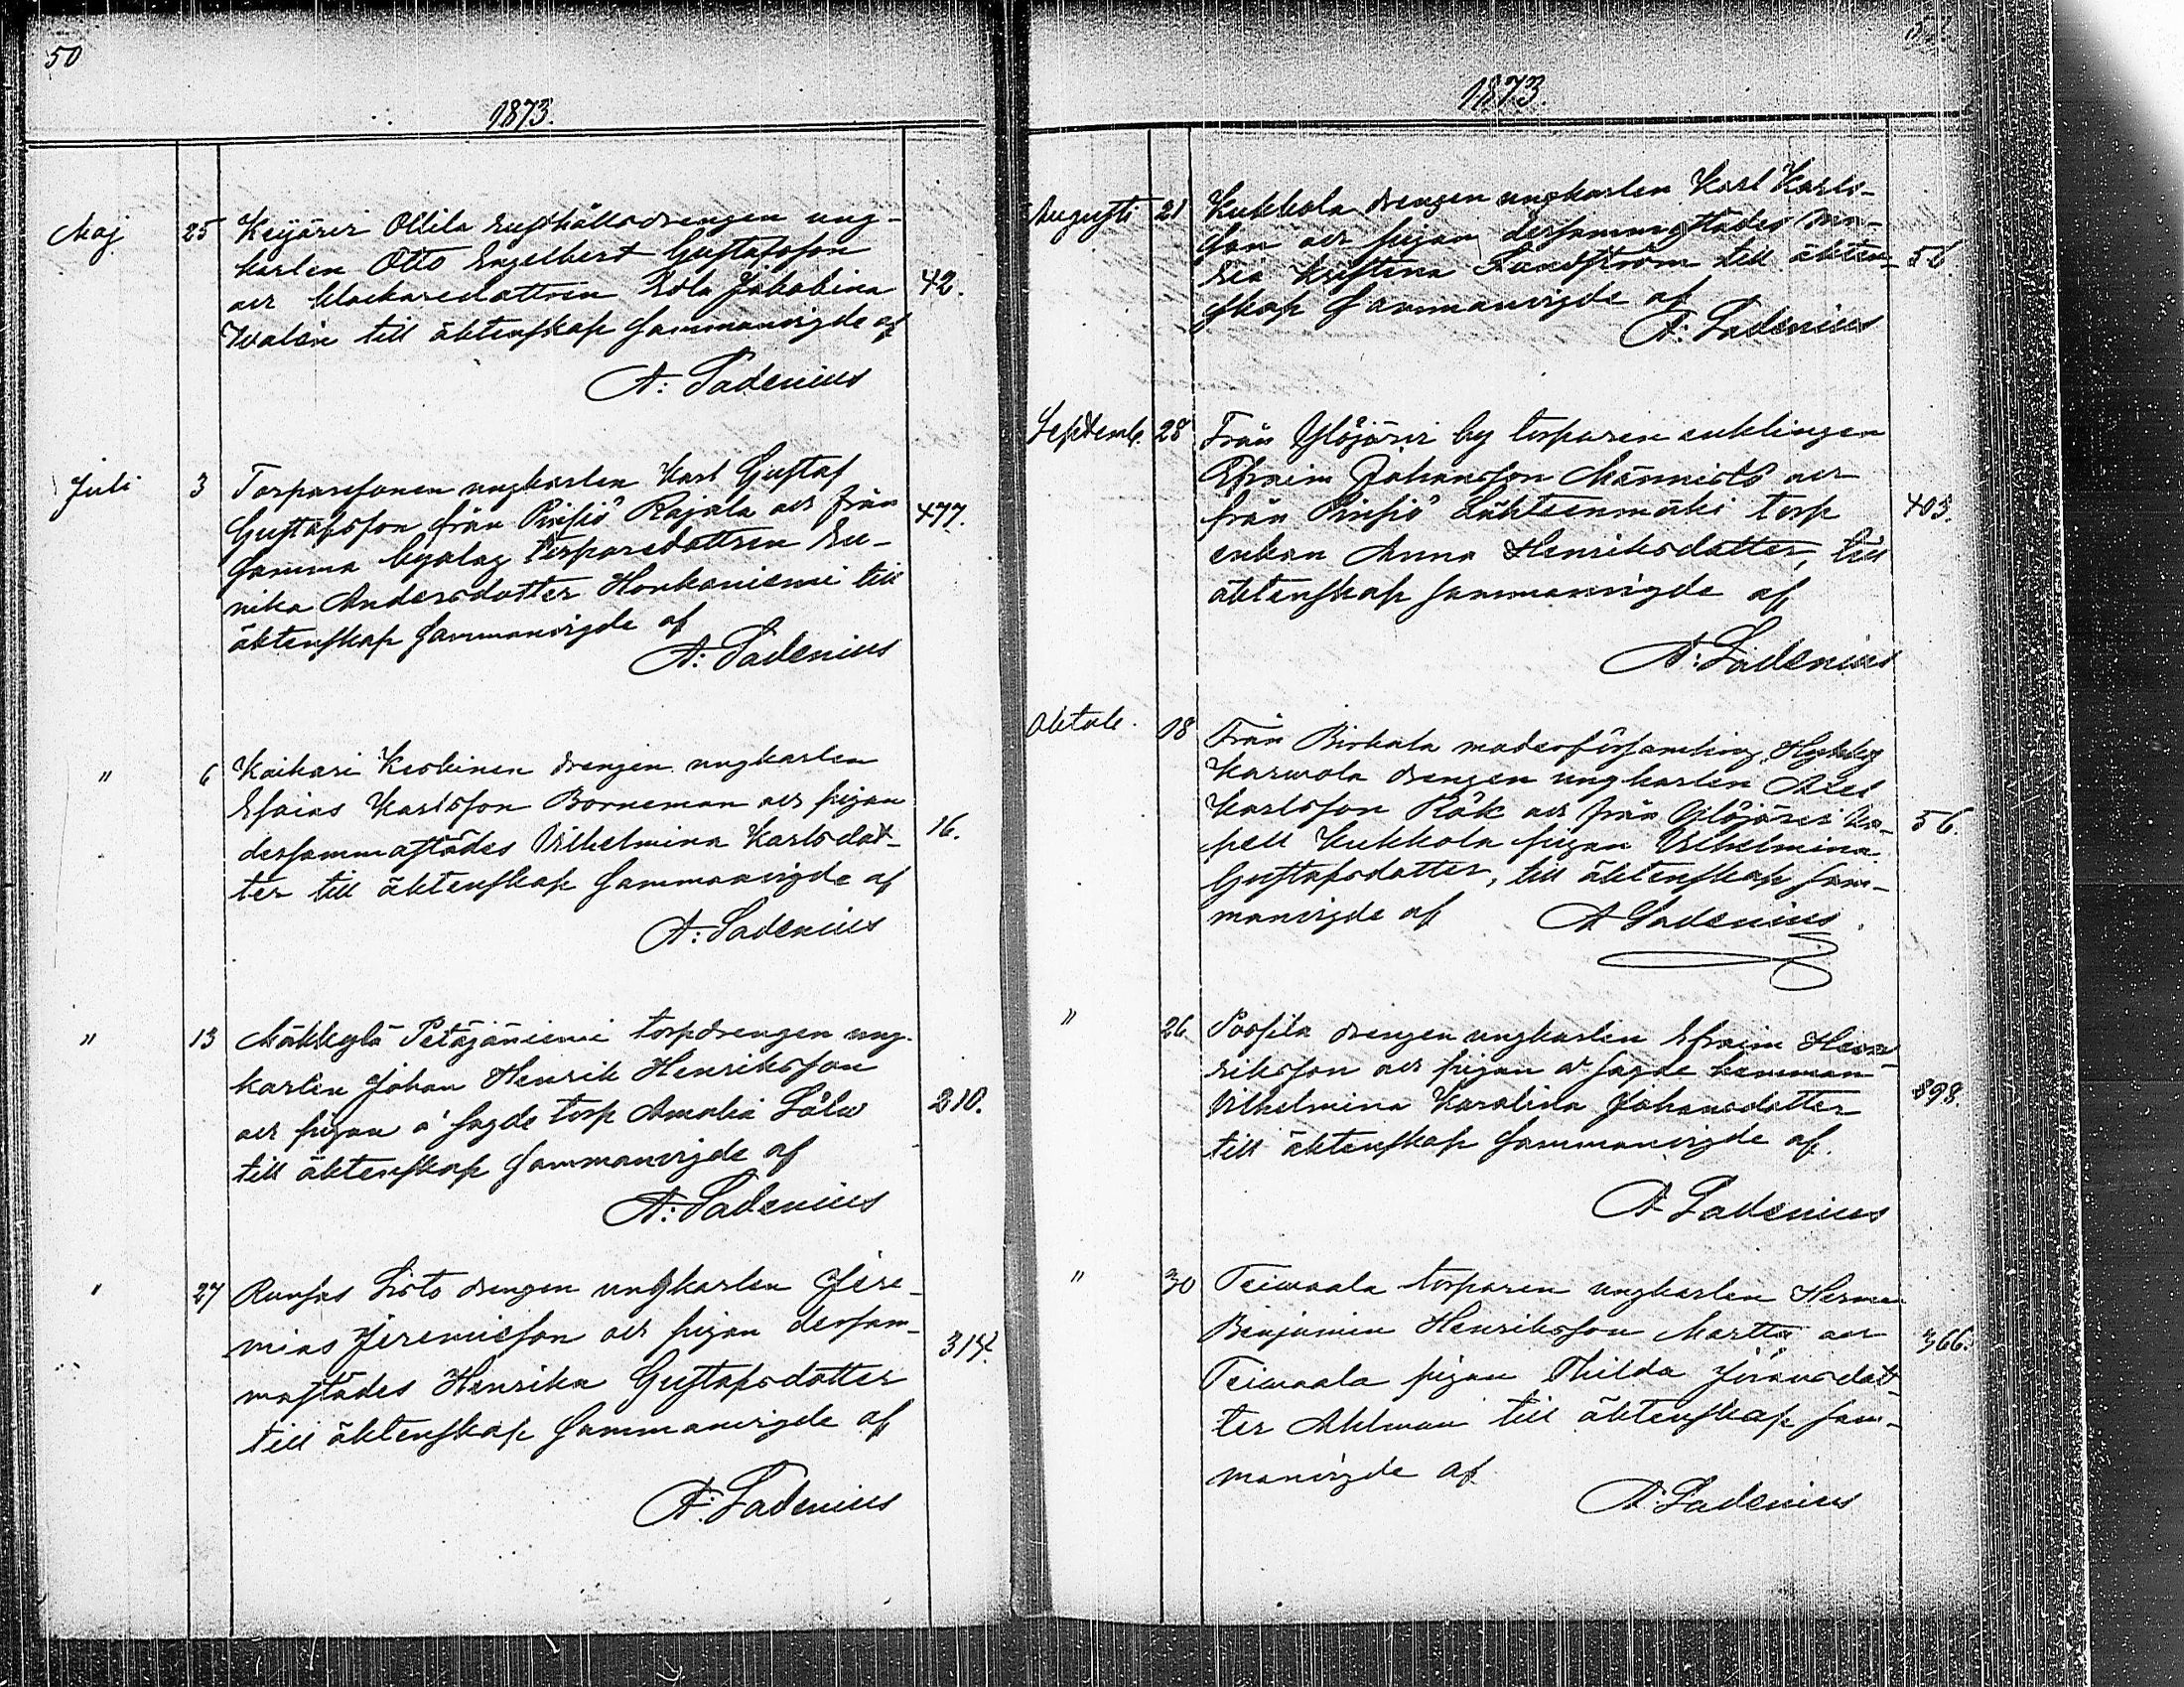 50
1873.
Maj 25 Keijärvi Ollila rusthållsdrengen ung-
karlen Otto Engelbert Gustafsson
och klockaredottren Ida Jakobina 42.
Walén till äktenskap sammanvigde af
A: Ladenius
Juli 3 Torparesonen ungkarlen Karl Gustaf
Gustafsson från Pinsiö Rajala och från 477.
samma byalag torparedottren Eu-
nika Andersdotter Honkaniemi till
äktenskap sammanvigde af
A: Ladenius
" 6 Kaihari Keskinen drengen ungkarlen
Esaias Karlsson Borneman och pigan
dersammastädes Vilhelmina Karlsdot- 16.
ter till äktenskap sammanvigde af
A: Ladenius
" 13 Mäkkylä Petäjäniemi torpdrengen ung-
karlen Johan Henrik Henriksson
och pigan å sagde torp Amalia Lölw 210.
till äktenskap sammanvigde af
A: Ladenius
" 27 Runsas Sisto drengen ungkarlen Jere-
mias Jeremiesson och pigan dersam- 314.
mastädes Henrika Gustafsdotter
till äktenskap sammanvigde af
A: Ladenius
1873.
Augusti 21 Kukkola drengen ungkarlen Karl Karls-
son och pigan dersammastädes Ma-
ria Kristina Sundström till äkten- 56.
skap sammanvigde af
A: Ladenius
Septemb. 28 Från Ylöjärvi by torparen enklingen
Efraim Johansson Männistö och
från Pinsiö Lähteenmäki torp 403.
enkan Anna Henriksdotter, till
äktenskap sammanvigde af
A: Ladenius
Oktob. 18 Från Birkala moderförsamling, Hyhky
Karwola drengen ungkarlen Axel
Karlsson Rök och från Ylöjärvi Ka- 56.
pell Kukkola pigan Vilhelmina
Gustafsdotter, till äktenskap sam-
manvigde af A Ladenius
" 26 Soosila drengen ungkarlen Efraim Hen-
riksson och pigan å sagde hemman
Vilhelmina Karolina Johansdotter 898.
till äktenskap sammanvigde af
A Ladenius
" 30 Teiwaala torparen ungkarlen Herman
Benjamin Henriksson Martta och 366.
Teiwaala pigan Thilda Jöransdot-
ter Ahlman till äktenskap sam-
manvigde af
A. Ladenius